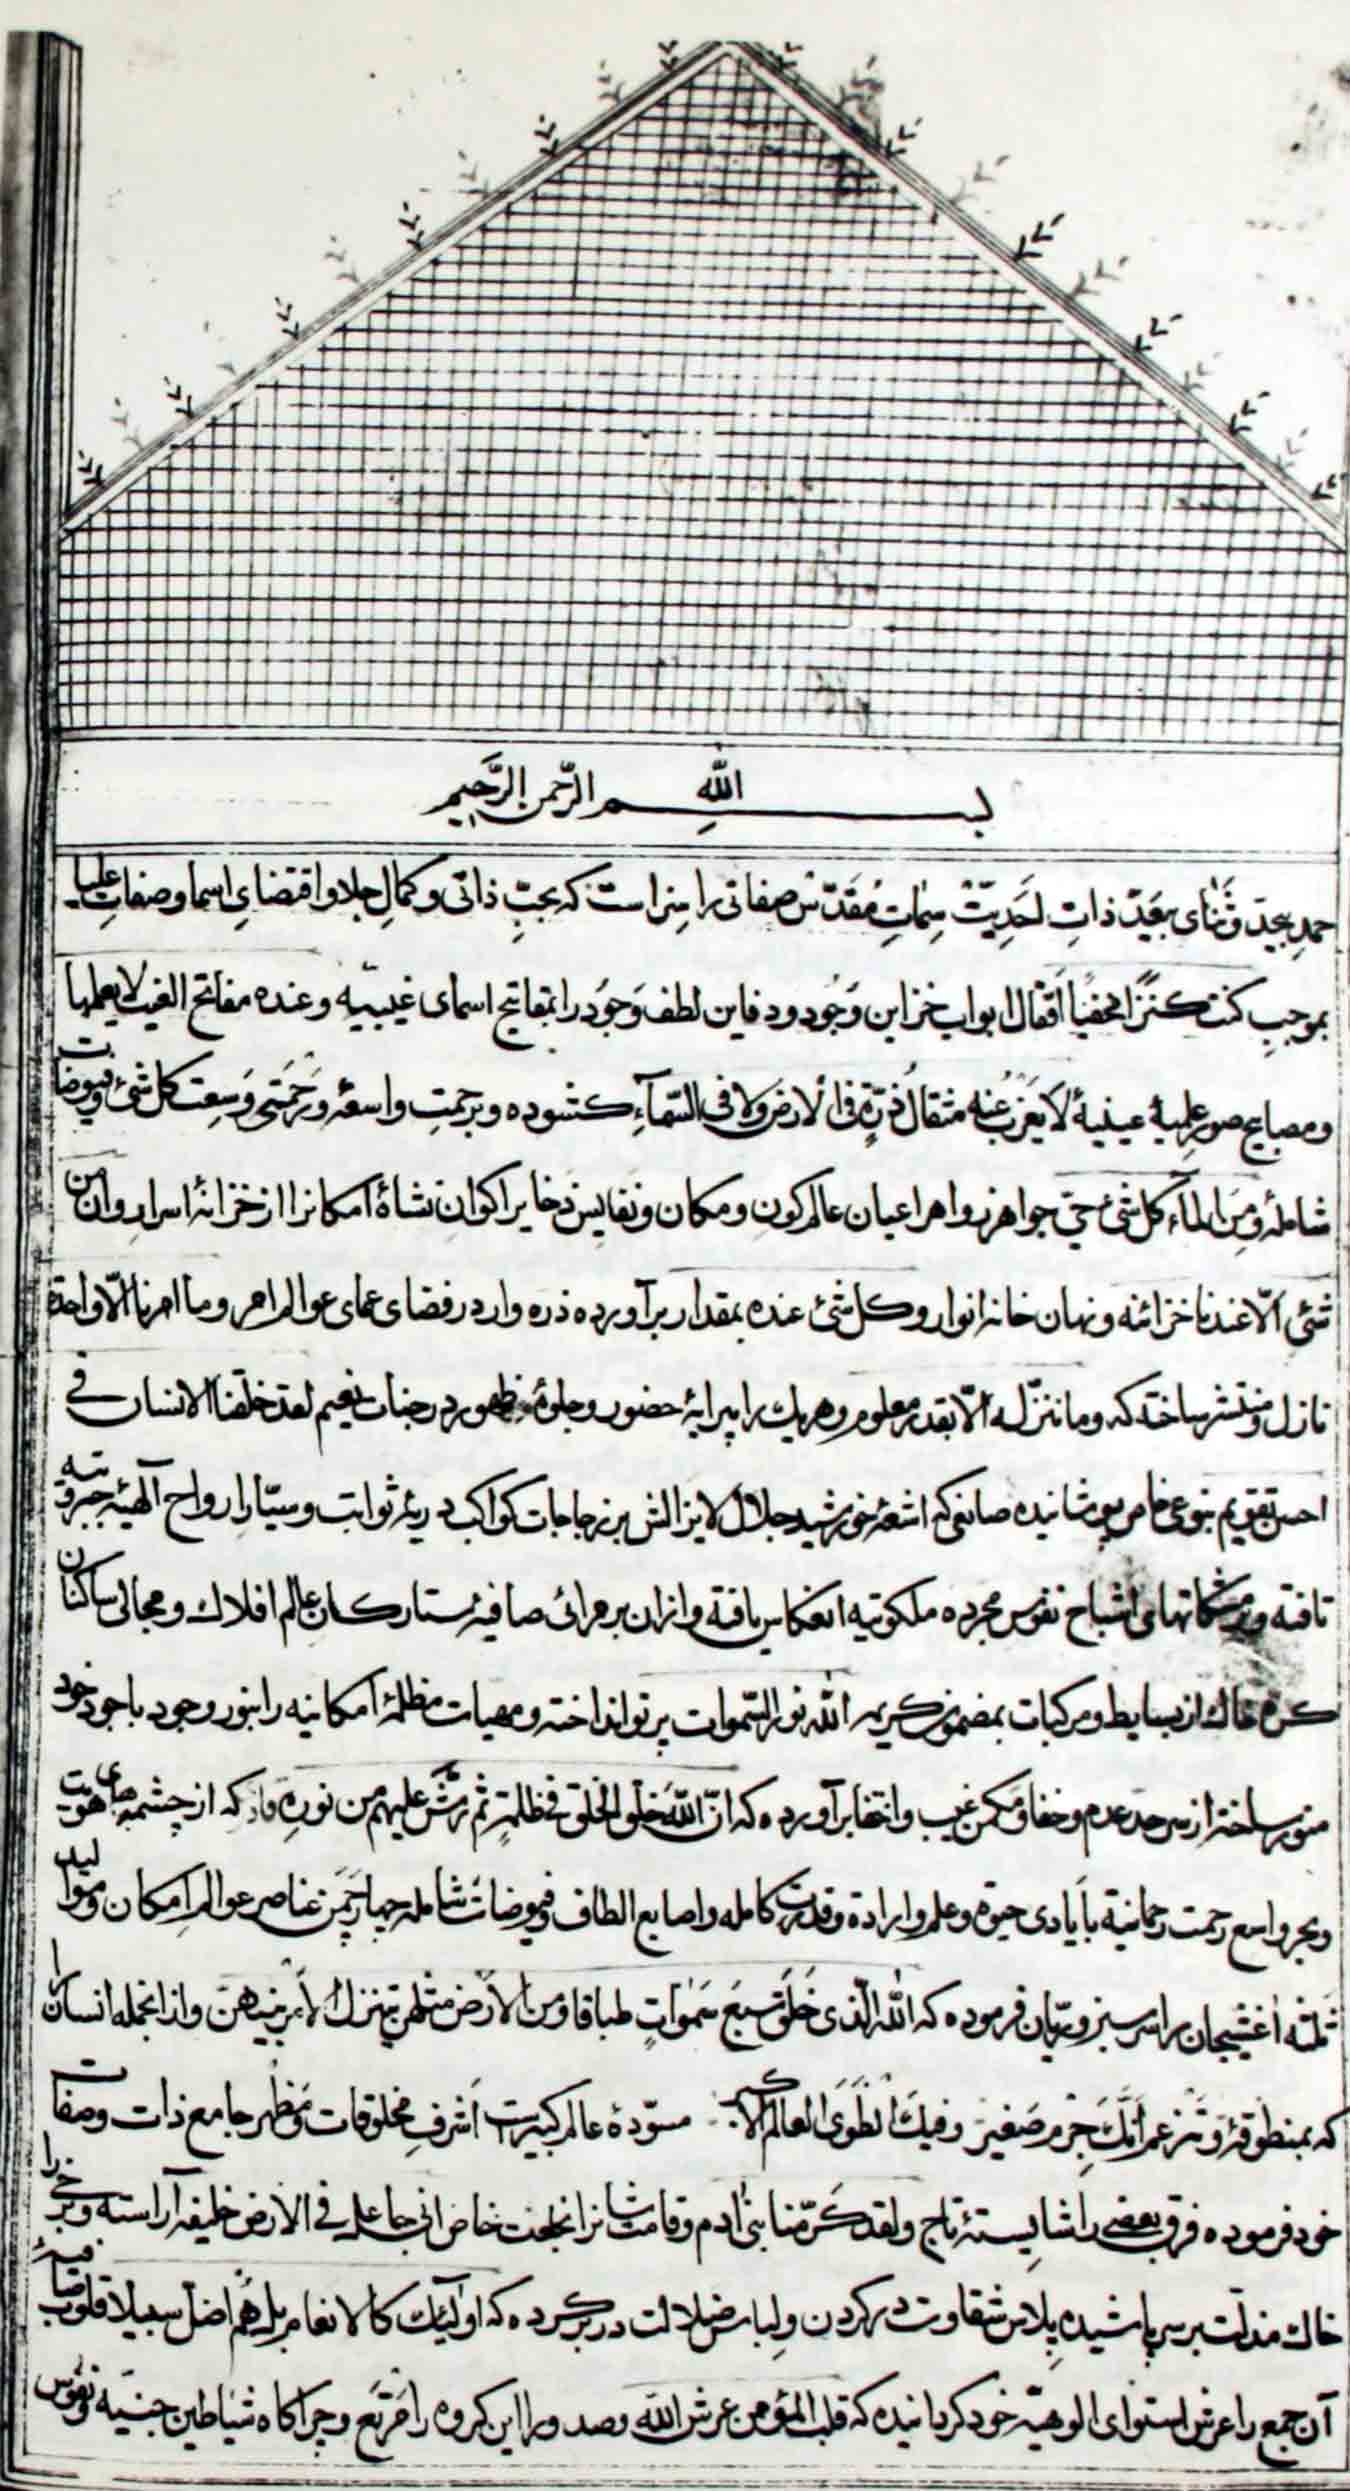 بسم الله الرحمن الرحیم
حمدِ بیحد وثَنٰای بیعَدّ ذاتِ اَحَدِیّتْ سِمٰاتِ مُقَدّسْ صفاتی را سزاست که بحبِّ ذاتی وکمالِ جلا واقتضایِ اسما وصفاتِ علیا
بموجبِ کنت کنزًا مخفیًا اَقفال ابواب خزاین وَجُود ودفاین لطف وَجوَد را بمفاتیح اسمای غیبیّه وعنده مفاتح الغیب لا یعلمها
ومصابیح صور علمیهٔ عینیهٔ لا یَعْزَبُ عنه مثقالُ ذَرّةٍ فی الْارض ولا فی السّمآءِ کشوده وبرحمتِ واسعهٔ ورَحمَتی وَسِعت کل شئ وفیوضات
شاملهٔ ومن المآء کل شئ حیّ جواهر زواهر اعیان عالم کون ومکان ونفایس ذخایر اکوان نشأهٔ امکانرا از خزانهٔ اسرار وان من
شئی الّا عندنا خزائنه ونهان خانهٔ انوار وکل شئ عنده بمقدار برآورده ذره وار در فضای عمای عوالم امر وما امرنا الّا واحدة
نازل ومنتشر ساخته که وما ننزّله الّا بقدر معلوم وهریك را پیرایهٔ حضور وجلوهٔ ظهور در جنات نعیم لقد خلقنا الانسان فی
احسن تقویم بنوعی خاص پوشانیده صانعی که اشعهٔ خورشید جلال لا یزالش بر زجاجات کواکب دریهٔ ثوابت وسیّار ارواح آلهیّه جبروتیه
تافته وبر مشکاتهای اشباح نفوس مجرده ملکوتیه انعکاس یافته وازان بر مرائی صافیهٔ ستارکان عالم افلاك ومجالی ساکنان
کره خاك از بسایط ومرکبات بمضمون کریمه الله نور السّموات پرتو انداخته ومهیات مظلمهٔ امکانیه را بنور وجود با جود خود
منور ساخته از سرحد عدم وخفا ومکمن غیب وانتفا برآورده که انّ اللّه خلق الخلق فی ظلمةٍ ثم رَشَّ علیهم من نورِه که از چشمه های هویت
وبحر واسع رحمت رحمانیة بایادی حیوة وعلم وارادة وقدرت کامله واصابع الطاف وفیوضات شامله چهارچَمَن عناصر عوالم امکان وموالید
ثلثه را سر سبز وریّان فرموده که اللّه الّذی خَلَق سبعَ سَمٰواتٍ طباقا ومن الْارض مثلهن یتنزل الْامْر بینهن وازانجمله انسانرا
که بمنطوقهٔ وتزعم اَنّكَ جِرْم صَغیرٌ وفیكَ انْطَوَی العالم الاکبر مسوّدهٔ عالم کبیرست اَشرفِ مخلوقات ومَظْهر جامع ذات وصفات
خود فرموده فرق بعضی را شایستهٔ تاج ولقد کَرّمنا بنی آدم وقامت شانرا بخلعت خاص انی جاعل فی الارض خلیفه آراسته وبرخی را
خاك مذلّت بر سر پاشیده پلاس شقاوت در کردن ولباس ضلالت در بر کرده که اولٰئك کالانعام بل هُم اضل سبیلا قلوب صافیهٔ
آن جمع را عرش استوای الوهیّه خود کردانیده که قلب المؤمن عرش اللّه وصدور این کروه را مَرْتَع وچراکاه شیاطین جنیه ونفوس